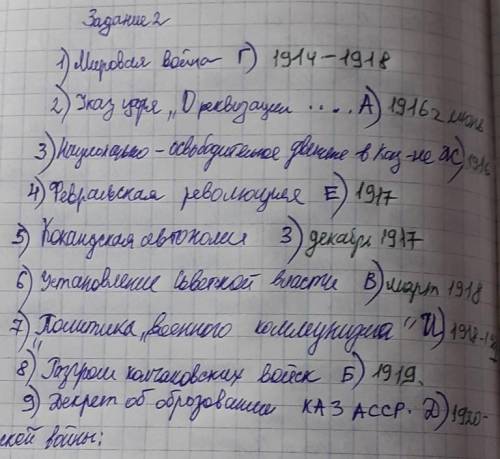 Задание 2
1) Мировая война Г) 1914-1918
2) Указ царя „О реквизации .... А) 1916 г июнь
3) Национально-освободительное движение в Каз-не Ж) 1916
4) Февральская революция Е) 1917
5) Кокандская автономия З) декабрь 1917
6) Установление Советской власти В) март 1918
7) Политика „военного коммунизма" И) 1918-19
8) Разгром колчаковских войск Б) 1919.
9) Декрет об оброзовании КАЗ АССР. Д) 1920-
ской войны: